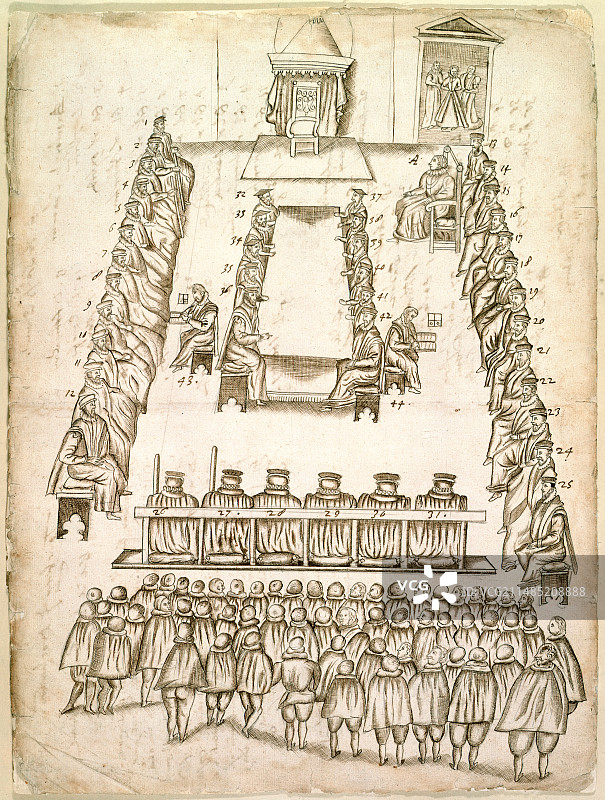 1
2
3
4
5
6
7
8
9
10
11
12
A
13
14
15
16
17
18
19
20
21
22
23
24
25
32
33
34
35
36
37
38
39
40
41
42
43.
44.
26
27.
28
29
30
31.
VCG